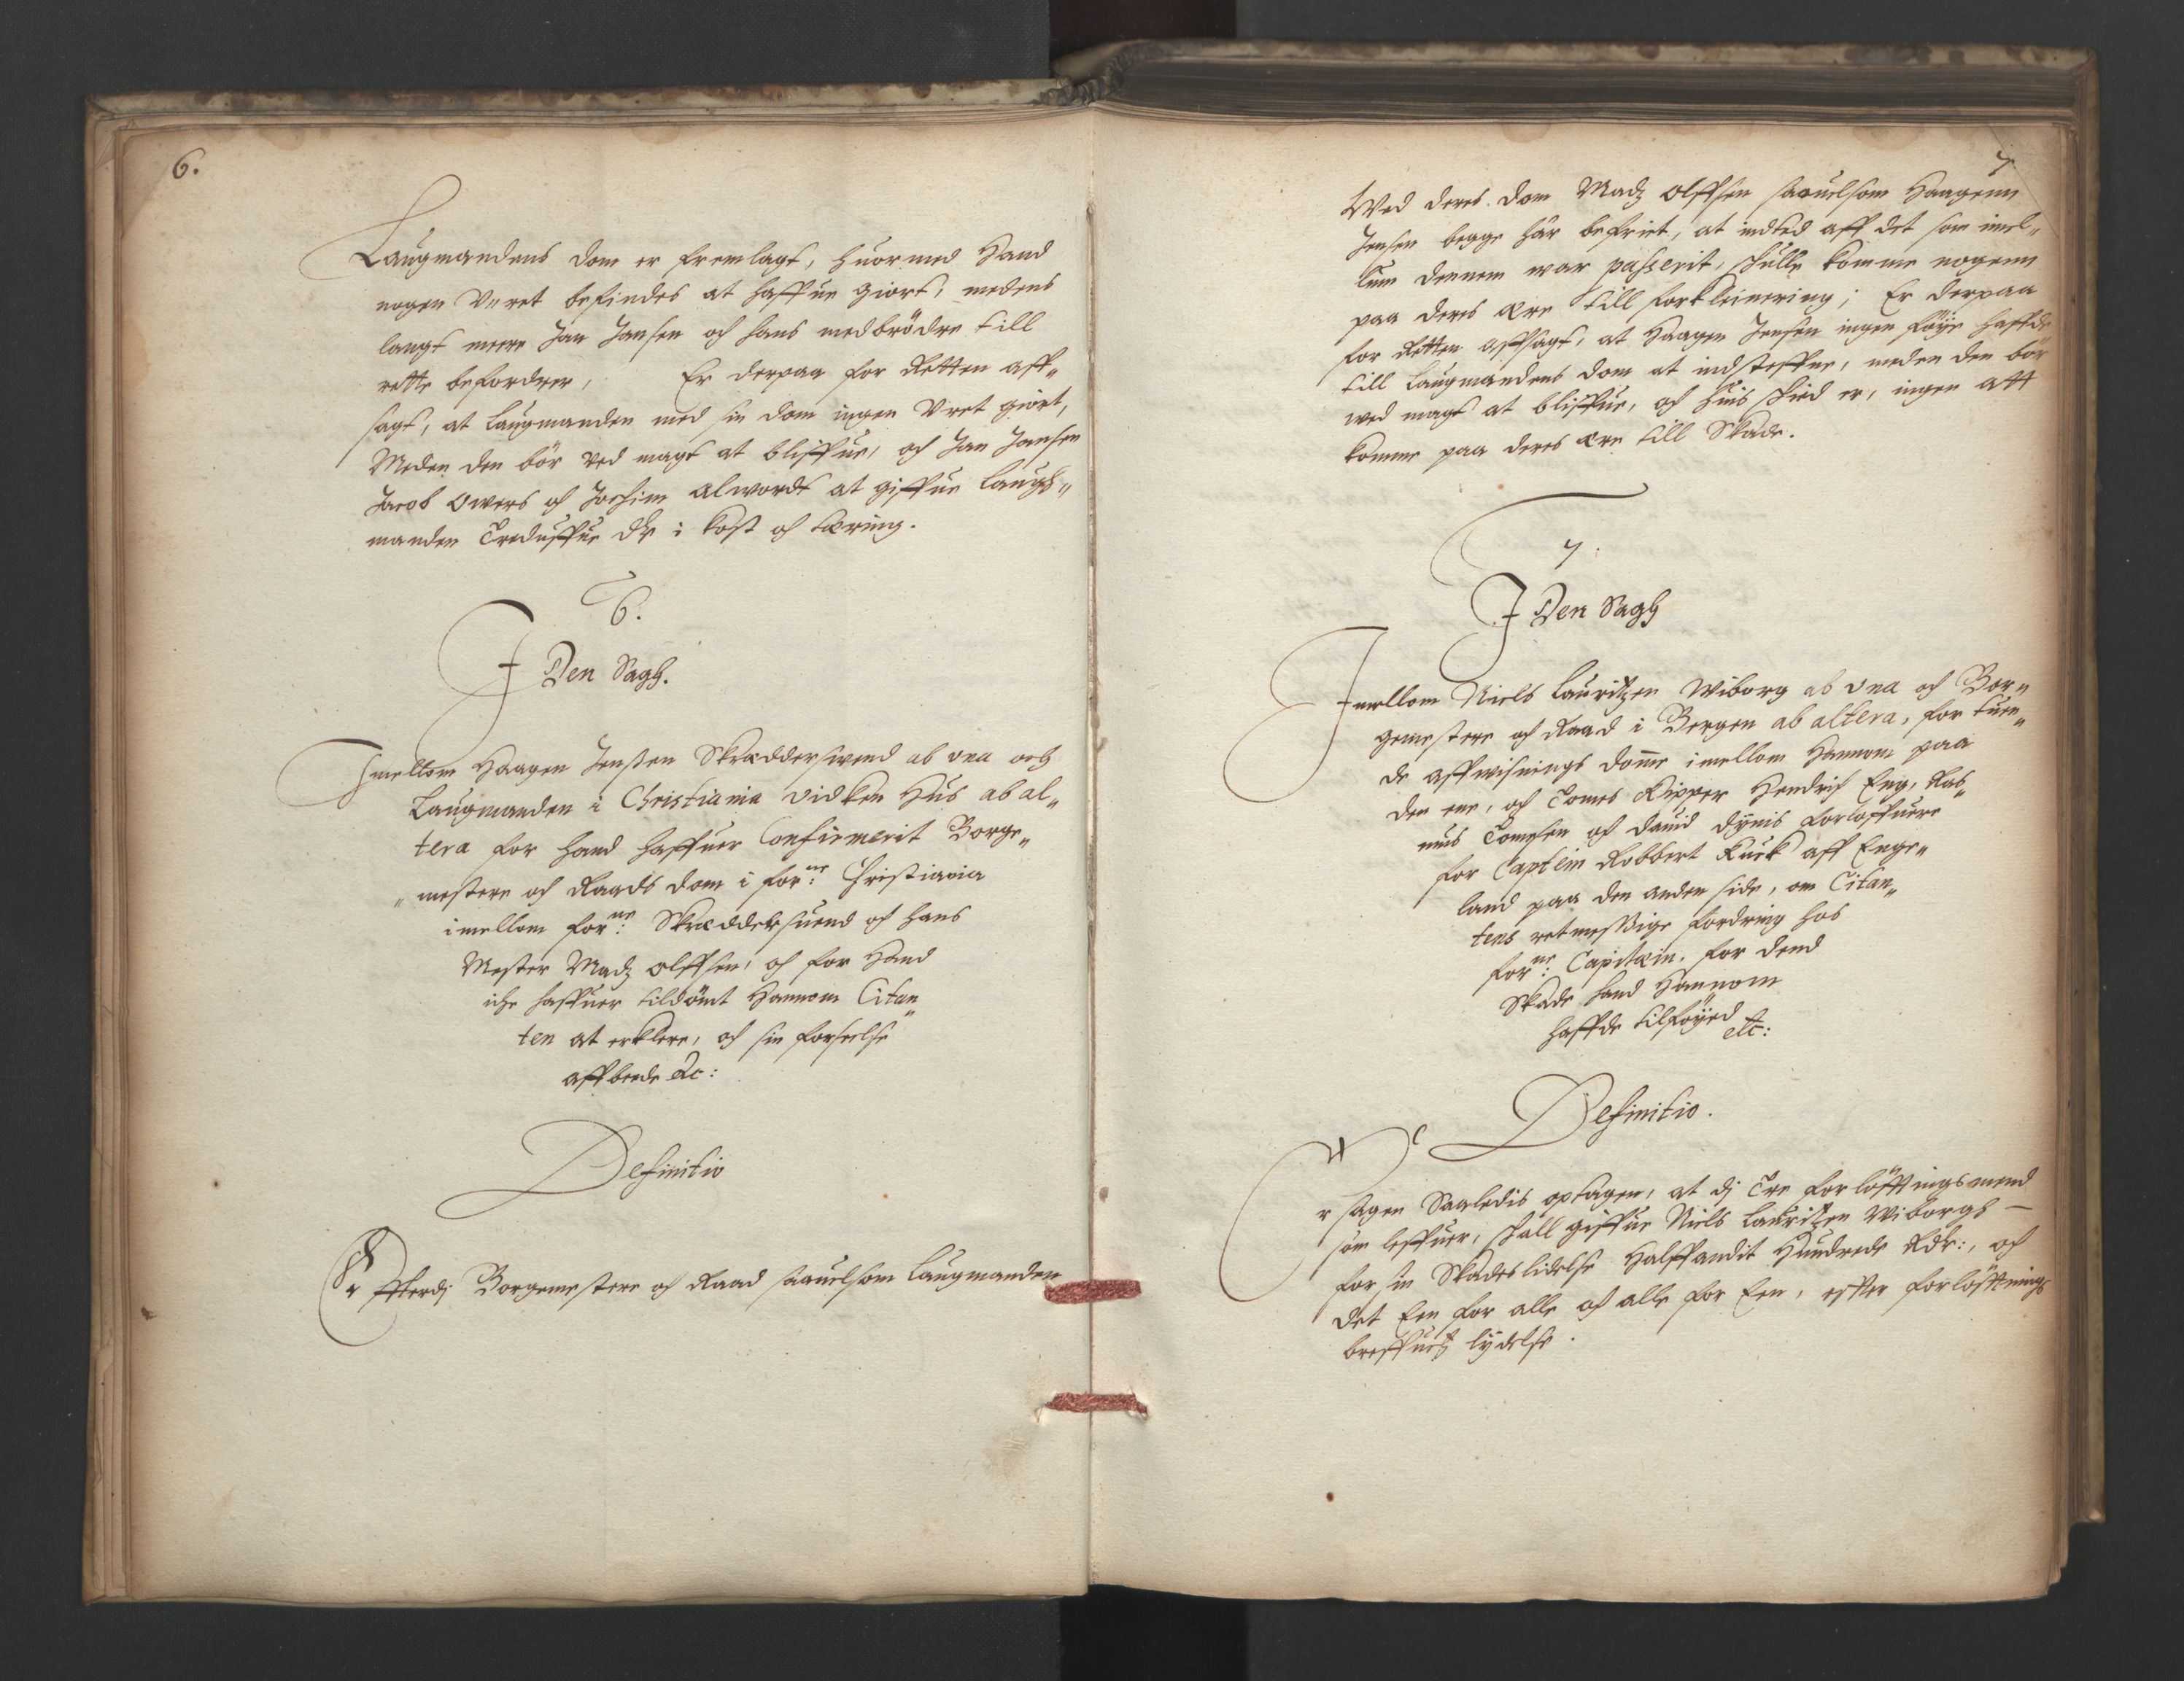 6.
Laugmandens dom er fremlagt, huormed Hand
nogen Vuret befindes at haffue giort, medens
langt meere Jan Jansen och hans medbrödre till
rette befordrer, Er derpaa for Retten aff„
sagt, at Laugmanden med sin dom ingen Vret giort,
Meden den bör ved magt at bliffue, och Jan Jansen
Jacob Owers och Jochim Alwordt at giffue Laugh„
manden Tredusfue dlr i kost och tæring.
6.
I Den Sagh.
Imellom Haagen Jensen Skrædderswend ab vna och
Laugmanden i Christiania vidken Hus ab al„
tera for hand haffuer Confirmerit Borge„
„mestere och Raads dom i forne: Christiania
imellom forne: Skræddersuend och hans
Mester Madz Olffsen, och for Hand
iche haffuer tildömt Hannom Citan„
ten at erklere, och sin forseelse
affbede &c:
Definitio
Effterdj Borgemestere och Raad saauelsom Laugmanden
7
Wed deres dom Madz Olffsen saauelsom Haagenn
Jensen begge har befriet, at indted aff det som imel„
lum dennem war passerit, schulle komme nogenn
paa deres ære till forkleinering; Er derpaa
for Retten affsagt, at Haagen Jensen ingen föye haffde
till Laugmandens dom at indsteffne, meden den bör
wed magt at bliffue, och huis schied er, ingen att
komme paa deres ære till Skade.
7.
I Den Sagh
Imellom Niels Lauritzen Wiborg ab vna och Bor„
gemestere och Raad i Bergen ab altera, for tuen„
de affwisnings domme imellom Hannom paa
den ene, och Tomes Kipper Hendrich Eng, Ras„
mus Tomesen och Dauid Dynis forloffuere
for Captein Robbert Kuck aff Enge„
land paa den anden side, om Citan„
tens retmessige fordring hos
forne: Capitein, for dend
Skade hand Hannom
haffde tilföyed
etc:
Definitio.
Er sagen Saaledis optagen, at dj Tre forlöfftingsmend
som leffuer, schall giffue Niels Lauritzen Wiborgh —
for sin Skadeslidelse Halffandit Hundrede Rdr:, och
det Een for alle och alle for Een, effter forlöfftnings
breffuetz lydelse.